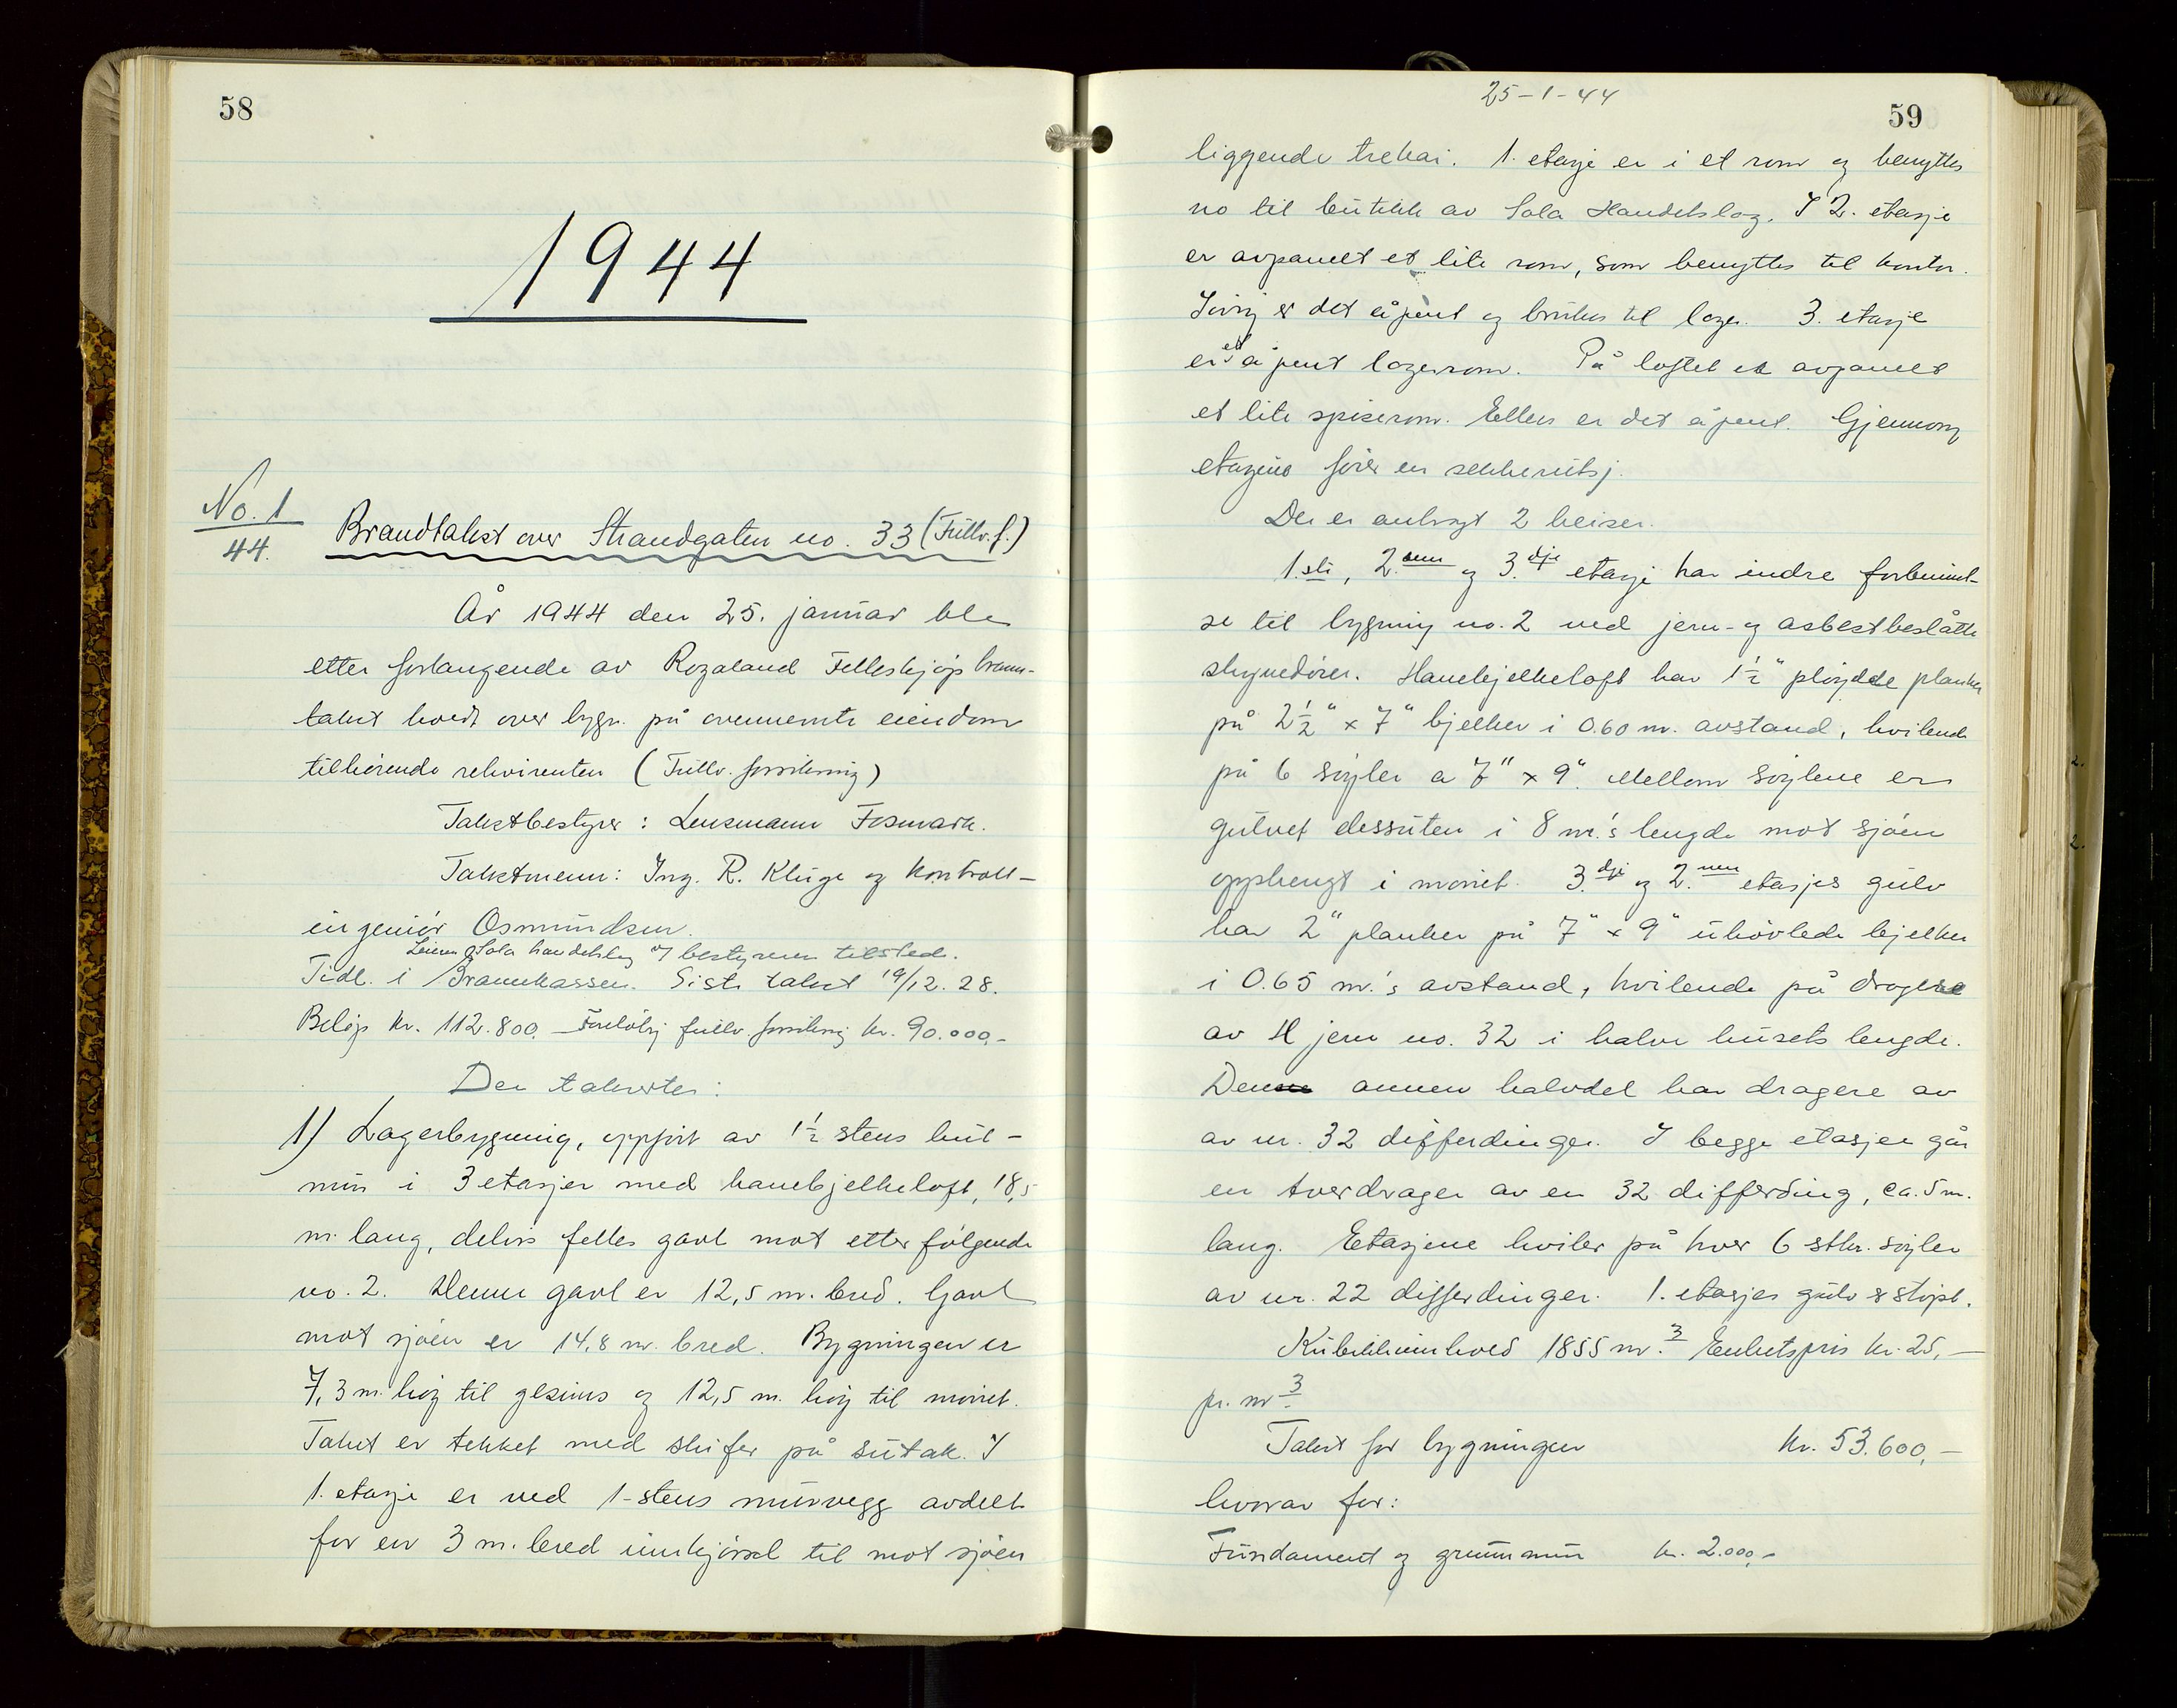 58
1944
No. 1
44.
Brandtakst over Strandgaten no. 33 (Fullv. f.)
År 1944 den 25. januar ble
etter forlangende av Rogaland Felleskjøp brann-
takst holdt over bygn. på ovennevnte eiendom
tilhørende rekvirenten (Fullv. forsikring)
Takstbestyrer: Lensmann Fosmark.
Takstmenn: Ing. R. Kluge og Kontroll-
ingeniør Osmundsen.
Sola handelslag v/ bestyreren tilstede.
Tidl. i Brannkassen. Siste takst 19/12. 28.
Beløp kr. 112.800. Foreløbig fullv. forsikring kr. 90.000,-
Der takseres:
1) Lagerbygning, oppført av 1½ stens hul-
mur i 3 etasjer med hanebjelkeloft, 18,5
m. lang, delvis felles gavl mot etterfølgende
no. 2. Denne gavl er 12,5 m. bred. Gavl
mot sjøen er 14,8 m. bred. Bygningen er
7,3 m. høy til gesims og 12,5 m. høy til mønet.
Taket er tekket med skifer på sutak. I
1. etasje er ved 1-stens murvegg avdelt
for en 3 m. bred innkjørsel til mot sjøen
25-1-44
59
liggende trekai. 1. etasje er i et rom og benyttes
no til butikk av Sola Handelslag. I 2. etasje
er avpanelt et lite rom, som benyttes til kontor.
Iøvrig er det åpent og brukes til lager. 3. etasje
er et åpent lagerrom. På loftet er avpanelt
et lite spiserom. Ellers er det åpent. Gjennom
etasjene fører en sekkerutsj.
Der er anbragt 2 heiser.
1.ste, 2.nen og 3.dje etasje har indre forbindel-
se til bygning no. 2 ved jern- og asbestbeslåtte
skyvedører. Hanebjelkeloft har 1½" pløyde planker
på 2½" x 7" bjelker i 0.60 m. avstand, hvilende
på 6 søyler a 7" x 9". Mellom søylene er
gulvet dessuten i 8 m.'s lengde mot sjøen
opphengt i mønet. 3.dje og 2.nen etasjes gulv
har 2" planker på 7" x 9" uhøvlede bjelker
i 0.65 m.'s avstand, hvilende på dragere
av H jern no. 32 i halve husets lengde.
Den annen halvdel har dragere av
av nr. 32 differdinger. I begge etasjer går
en tverdrager av en 32 differding, ca. 5 m.
lang. Etasjene hviler på hver 6 stkr. søyler
av nr. 22 differdinger. 1. etasjes gulv er støpt.
Kubikkinnhold 1855 m.3 Enhetspris kr. 25,—
pr. m3
Takst for bygningen kr. 53.600,—
hvorav for:
Fundament og grunnmur kr. 2.000,-